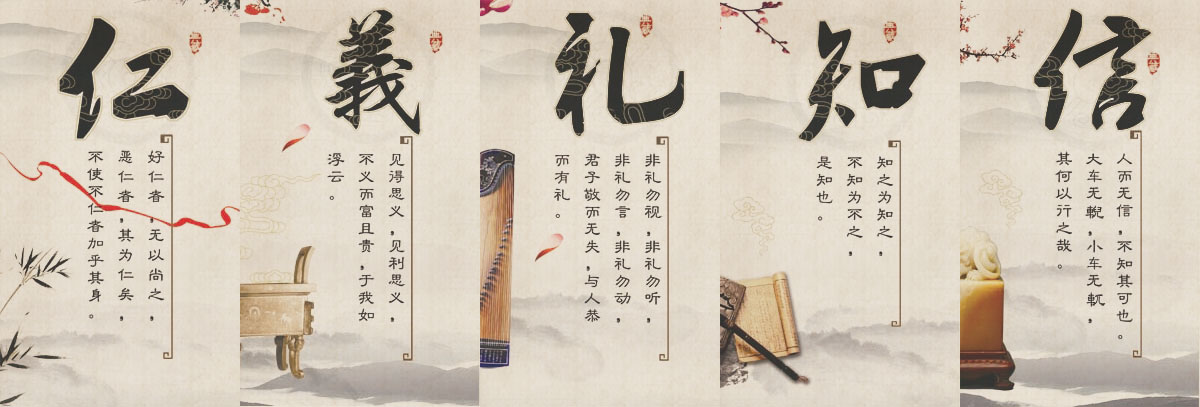 仁
好仁者，无以尚之，
恶仁者，其为仁矣，
不使不仁者加乎其身。
義
见得思义，见利思义，
不义而富且贵，于我如
浮云。
礼
非礼勿视，非礼勿听，
非礼勿言，非礼勿动，
君子敬而无失，与人恭
而有礼。
知
知之为知之，
不知为不之，
是知也。
信
人而无信，不知其可也。
大车无輗，小车无軏，
其何以行之哉。